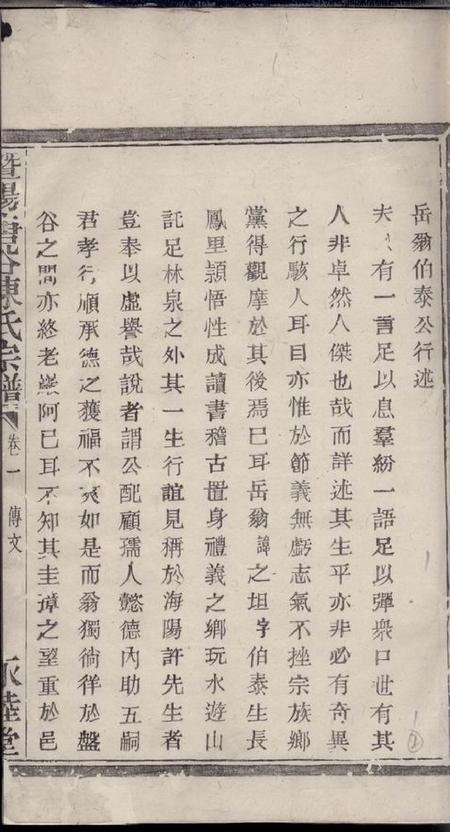 岳翁伯泰公行述
夫人有一言足以息羣紛一語足以彈衆口世有其
人非卓然人傑也哉而詳述其生平亦非必有奇異
之行駭人耳目亦惟於節義無虧志氣不挫宗族鄉
黨得觀摩於其後焉已耳岳翁諱之坦字伯泰生長
鳳里頴悟性成讀書稽古置身禮義之鄉玩水遊山
託足林泉之外其一生行誼見稱於海陽許先生者
豈奉以虛譽哉說者謂公配顧孺人懿德內助五嗣
君孝行順承德之獲福不爽如是而翁獨徜徉於盤
谷之間亦終老巖阿已耳不知其圭璋之望重於邑
暨陽 谷陳氏宗譜
卷一
傳文
永睦堂
1